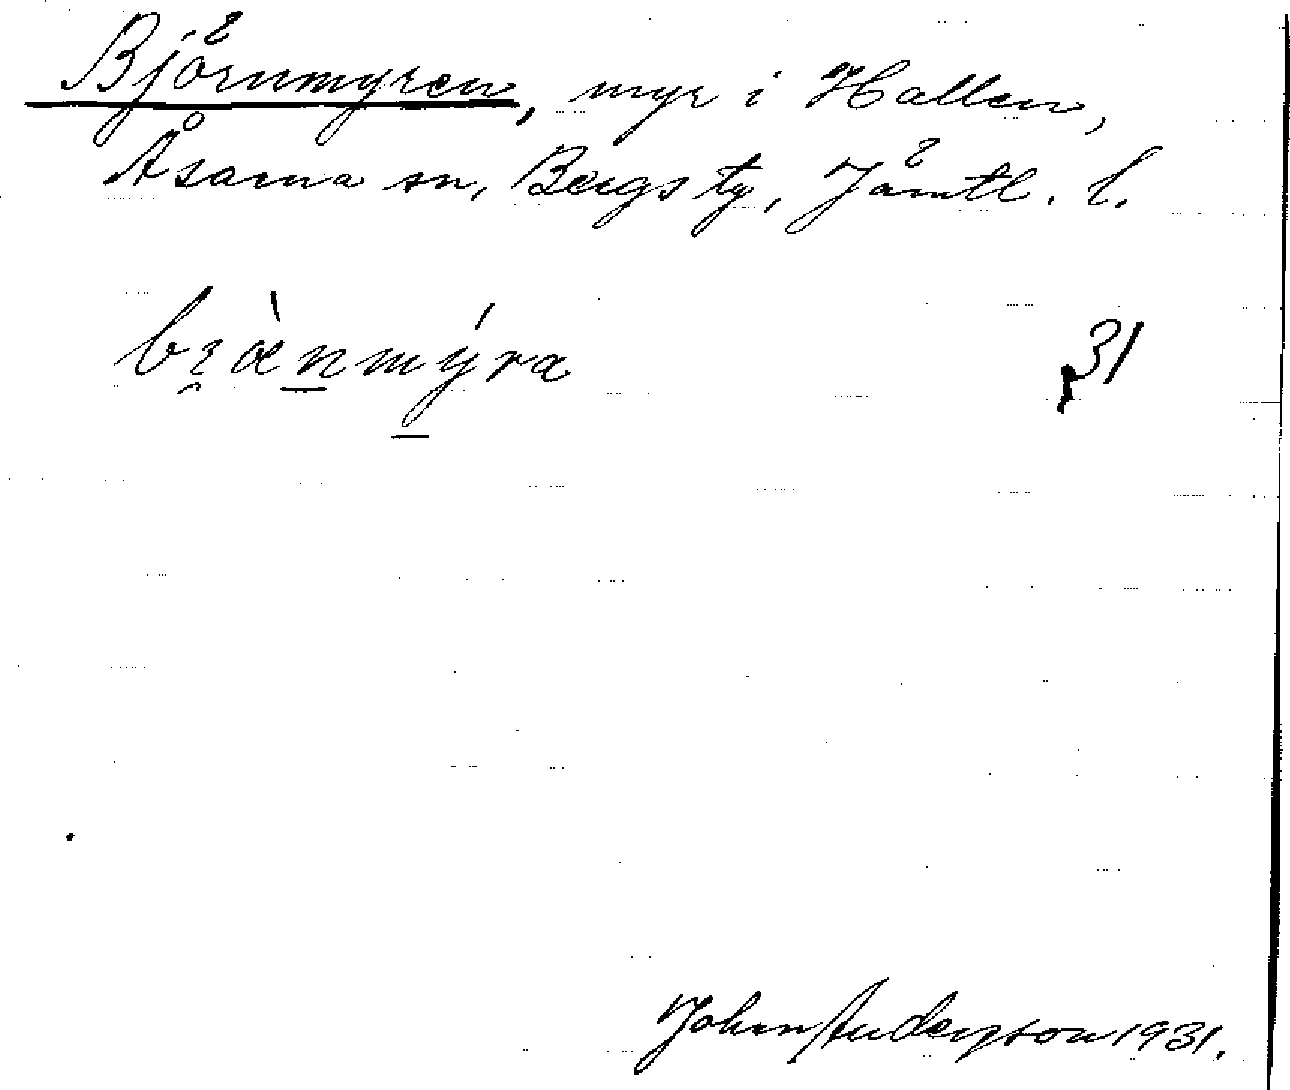 Björnmyren, myr i Hallen,
Åsarna sn, Bergs tg, Jämtl. l.
bi̯æ̀nmýra 31
Johan Anderson 1931.